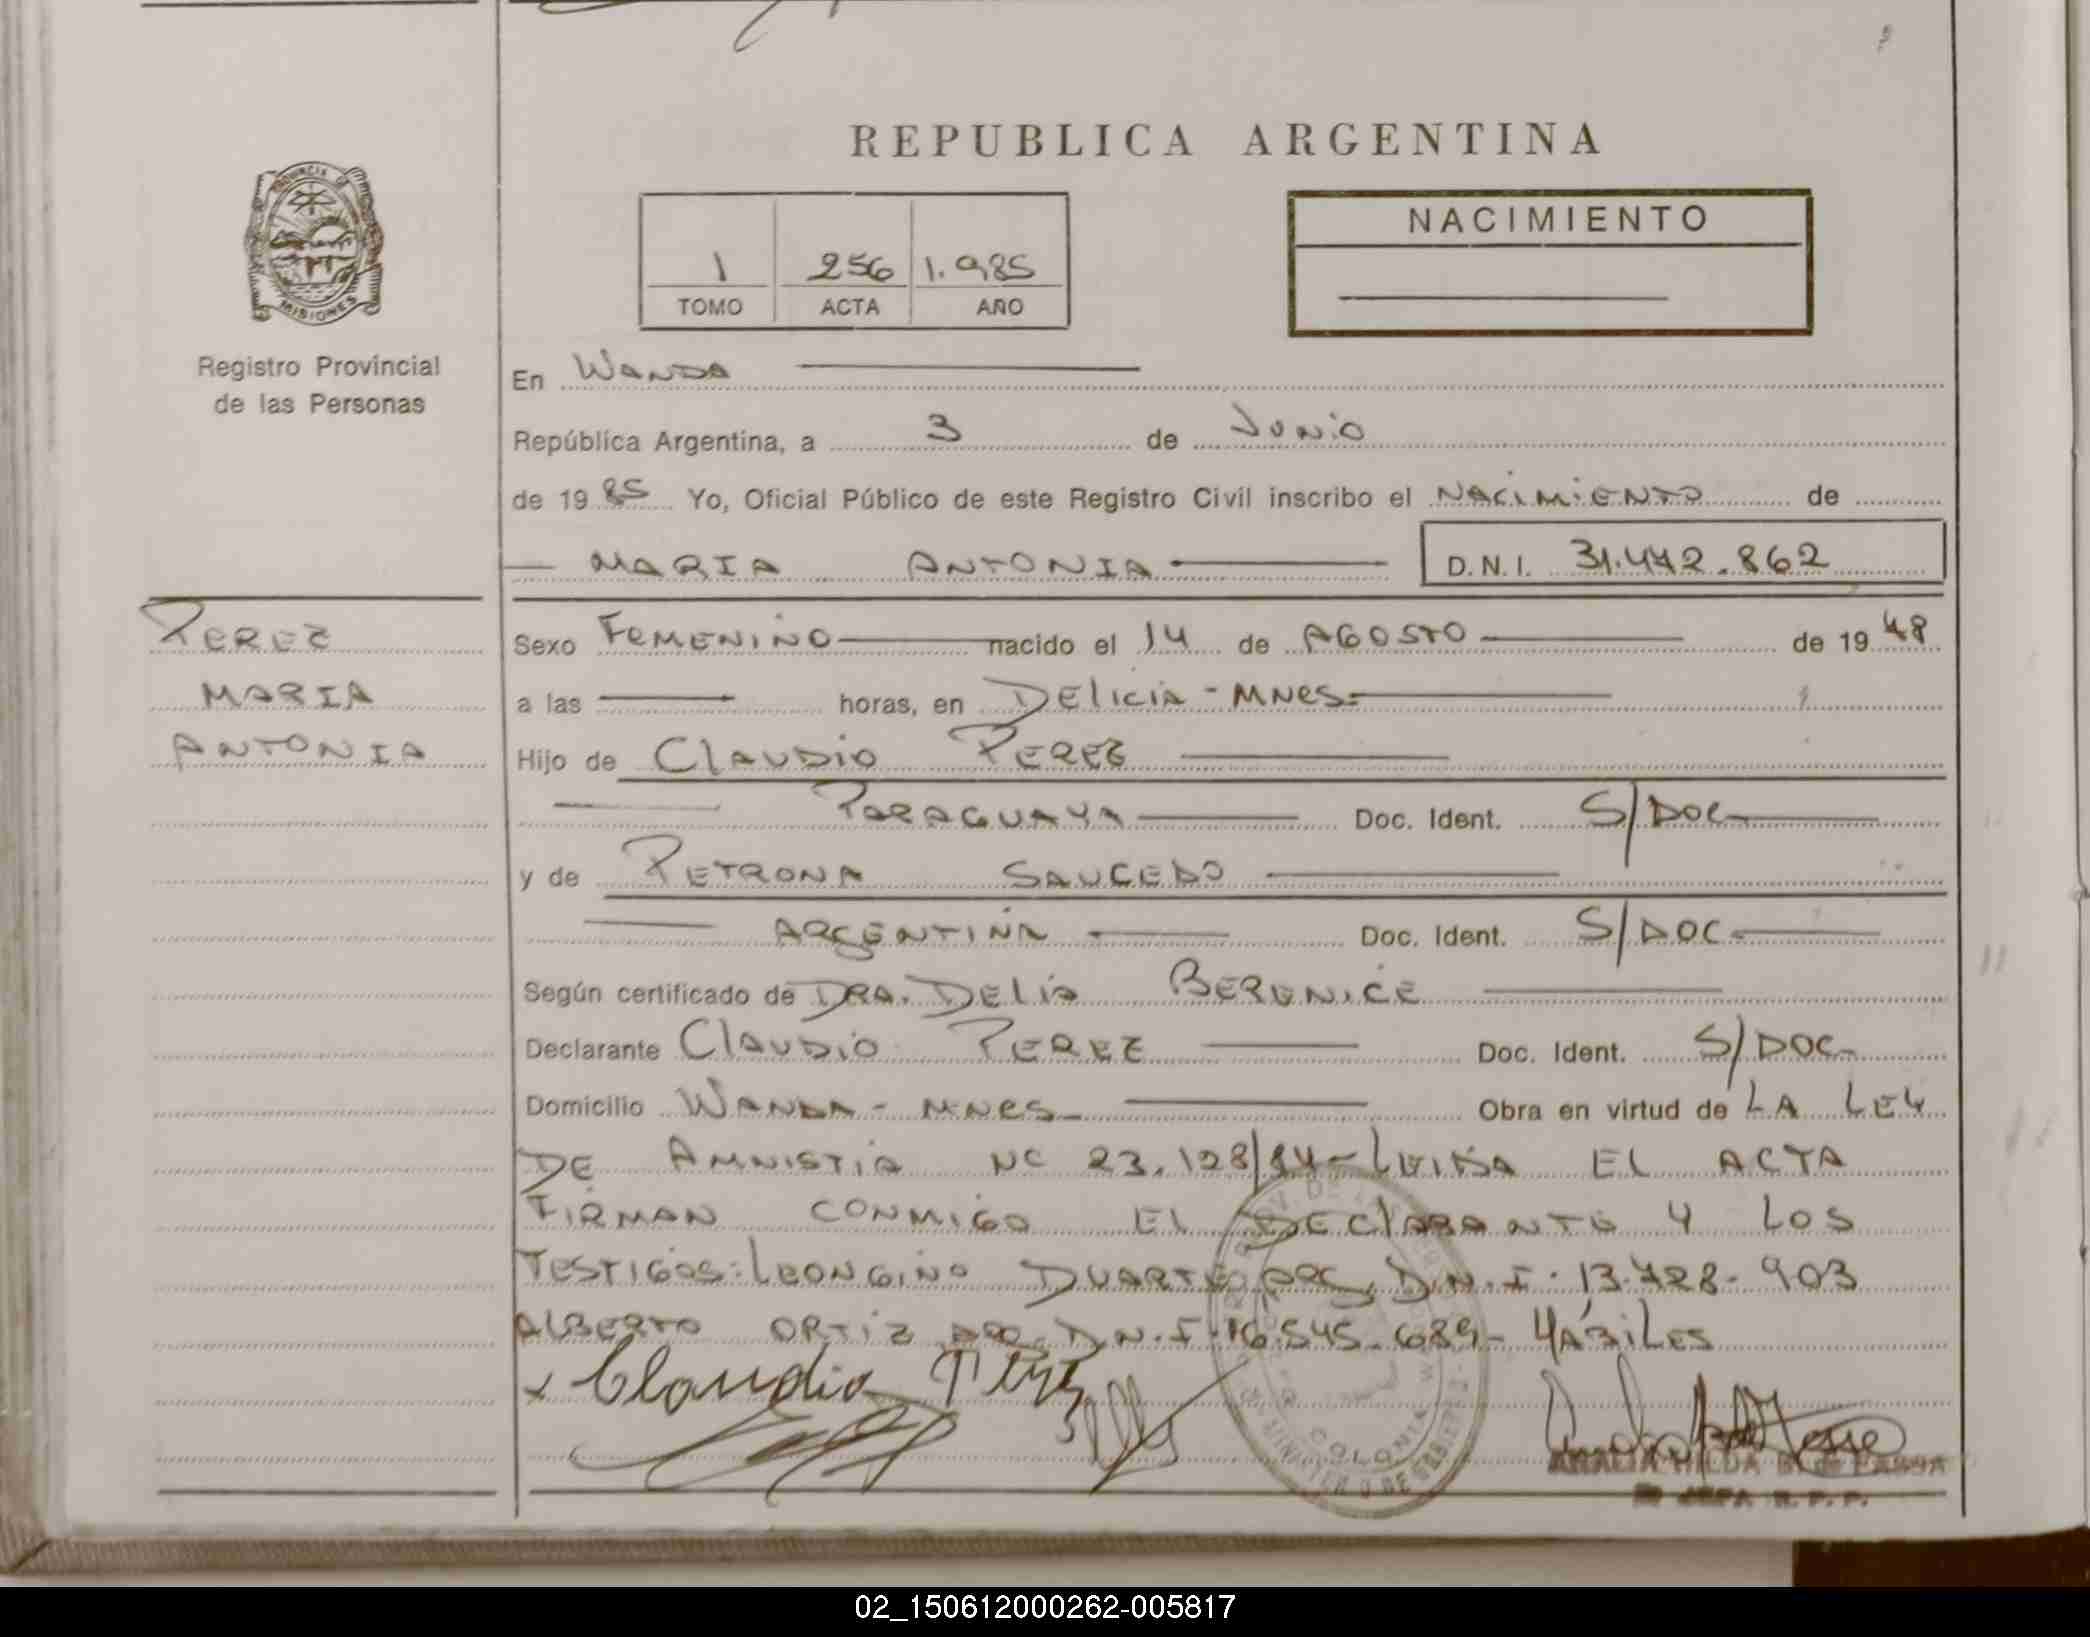 REPUBLICA ARGENTINA
PROVINCIA DE
MISIONES
Registro Provincial
de las Personas
1 256 1.985
TOMO ACTA AÑO
NACIMIENTO
En WANDA
República Argentina, a 3 de JUNIO
de 1985 Yo, Oficial Público de este Registro Civil inscribo el NACIMIENTO de
MARIA ANTONIA D.N.I. 31.472.862
PEREZ
MARIA
ANTONIA
Sexo FEMENINO nacido el 14 de AGOSTO de 1948
a las horas, en DELICIA - MNES=
Hijo de CLAUDIO PEREZ
PARAGUAYA Doc. Ident. S/DOC
y de PETRONA SAUCEDO
ARGENTINA Doc. Ident. S/DOC
Según certificado de DRA. DELIA BERENICE
Declarante CLAUDIO PEREZ Doc. Ident. S/DOC-
Domicilio WANDA - MNES- Obra en virtud de LA LEY
DE AMNISTIA 23.128/84- EL ACTA
FIRMAN CONMIGO EL DECLARANTE Y LOS
TESTIGOS: LEONGINO DUARTE D.N.I. 13.728.903
ALBERTO ORTIZ D.N.I. 16.545.689- HÁBILES
x Claudio Perez
COLONIA
AMALIA HILDA
JEFA R.P.P.
02_150612000262-005817